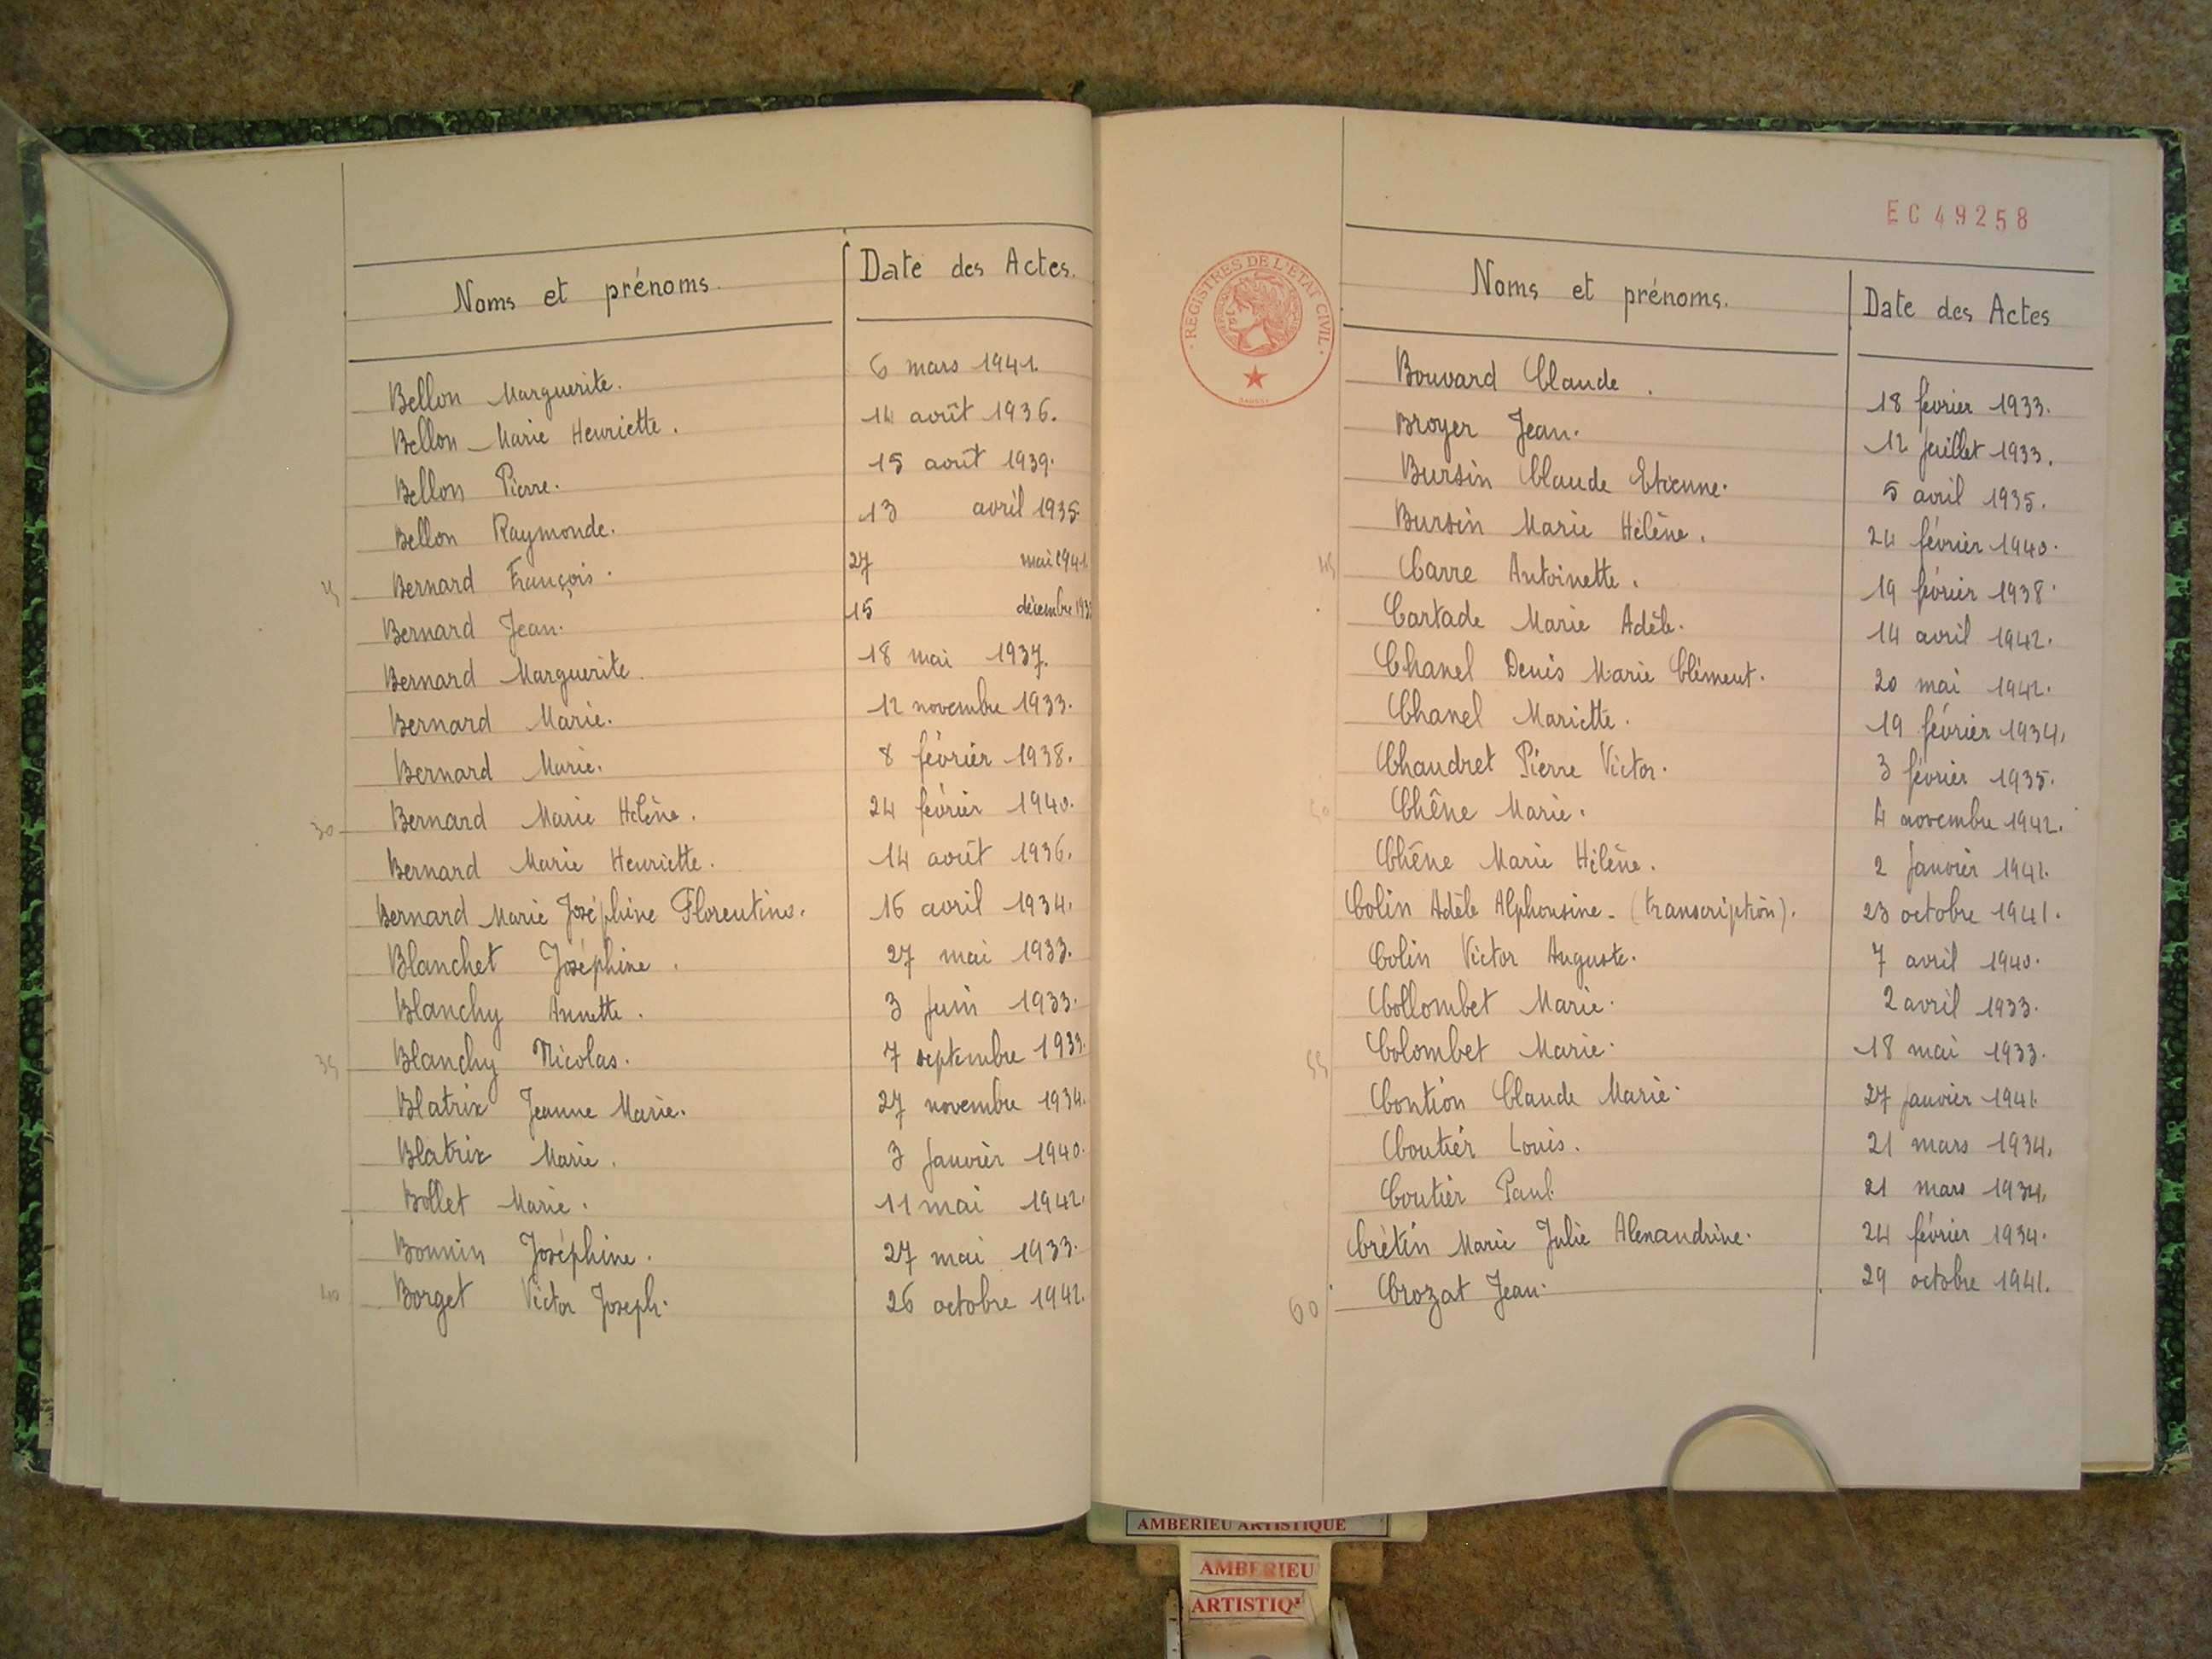 Noms et prénoms. Date des Actes.
Bellon Marguerite. 6 mars 1941.
Bellon Marie Henriette. 14 août 1936.
Bellon Pierre. 15 août 1939.
Bellon Raymonde. 13 avril 1935.
25 Bernard François. 27 mai 1941.
Bernard Jean. 15 décembre
Bernard Marguerite. 18 mai 1937.
Bernard Marie. 12 novembre 1933.
Bernard Marie. 8 février 1938.
30 Bernard Marie Helène. 24 février 1940.
Bernard Marie Henriette. 14 août 1936.
Bernard Marie Joséphine Florentine. 16 avril 1934.
Blanchet Joséphine. 27 mai 1933.
Blanchy Annette. 3 Juin 1933.
35 Blanchy Nicolas. 7 septembre 1933.
Blatrix Jeanne Marie. 27 novembre 1934.
Blatrix Marie. 3 Janvier 1940.
Bollet Marie. 11 mai 1942.
Bonnin Joséphine. 27 mai 1933.
40 Borget Victor Joseph. 26 octobre 1942.
EC 49258
REGISTRES DE L'ETAT CIVIL
Noms et prénoms. Date des Actes
Bouvard Claude. 18 février 1933.
Broyer Jean. 12 Juillet 1933.
Bursin Claude Etienne. 5 avril 1935.
Bursin Marie Hélène. 24 février 1940.
45 Carre Antoinette. 19 février 1938.
Cartade Marie Adèle. 14 avril 1942.
Chanel Denis Marie Clément. 20 mai 1942.
Chanel Mariette. 19 février 1934.
Chaudret Pierre Victor. 3 février 1935.
50 Chêne Marie. 4 novembre 1942.
Chêne Marie Hélène. 2 Janvier 1941.
Colin Adèle Alphonsine - (transcription). 23 octobre 1941.
Colin Victor Auguste. 7 avril 1940.
Collombet Marie. 2 avril 1933.
55 Colombet Marie. 18 mai 1933.
Contion Claude Marie. 27 janvier 1941.
Coutier Louis. 21 mars 1934.
Coutier Paul. 21 mars 1934.
Crétin Marie Julie Alexandrine. 24 février 1934.
60 Crozat Jean. 29 octobre 1941.
AMBERIEU ARTISTIQUE
AMBERIEU
ARTISTIQ